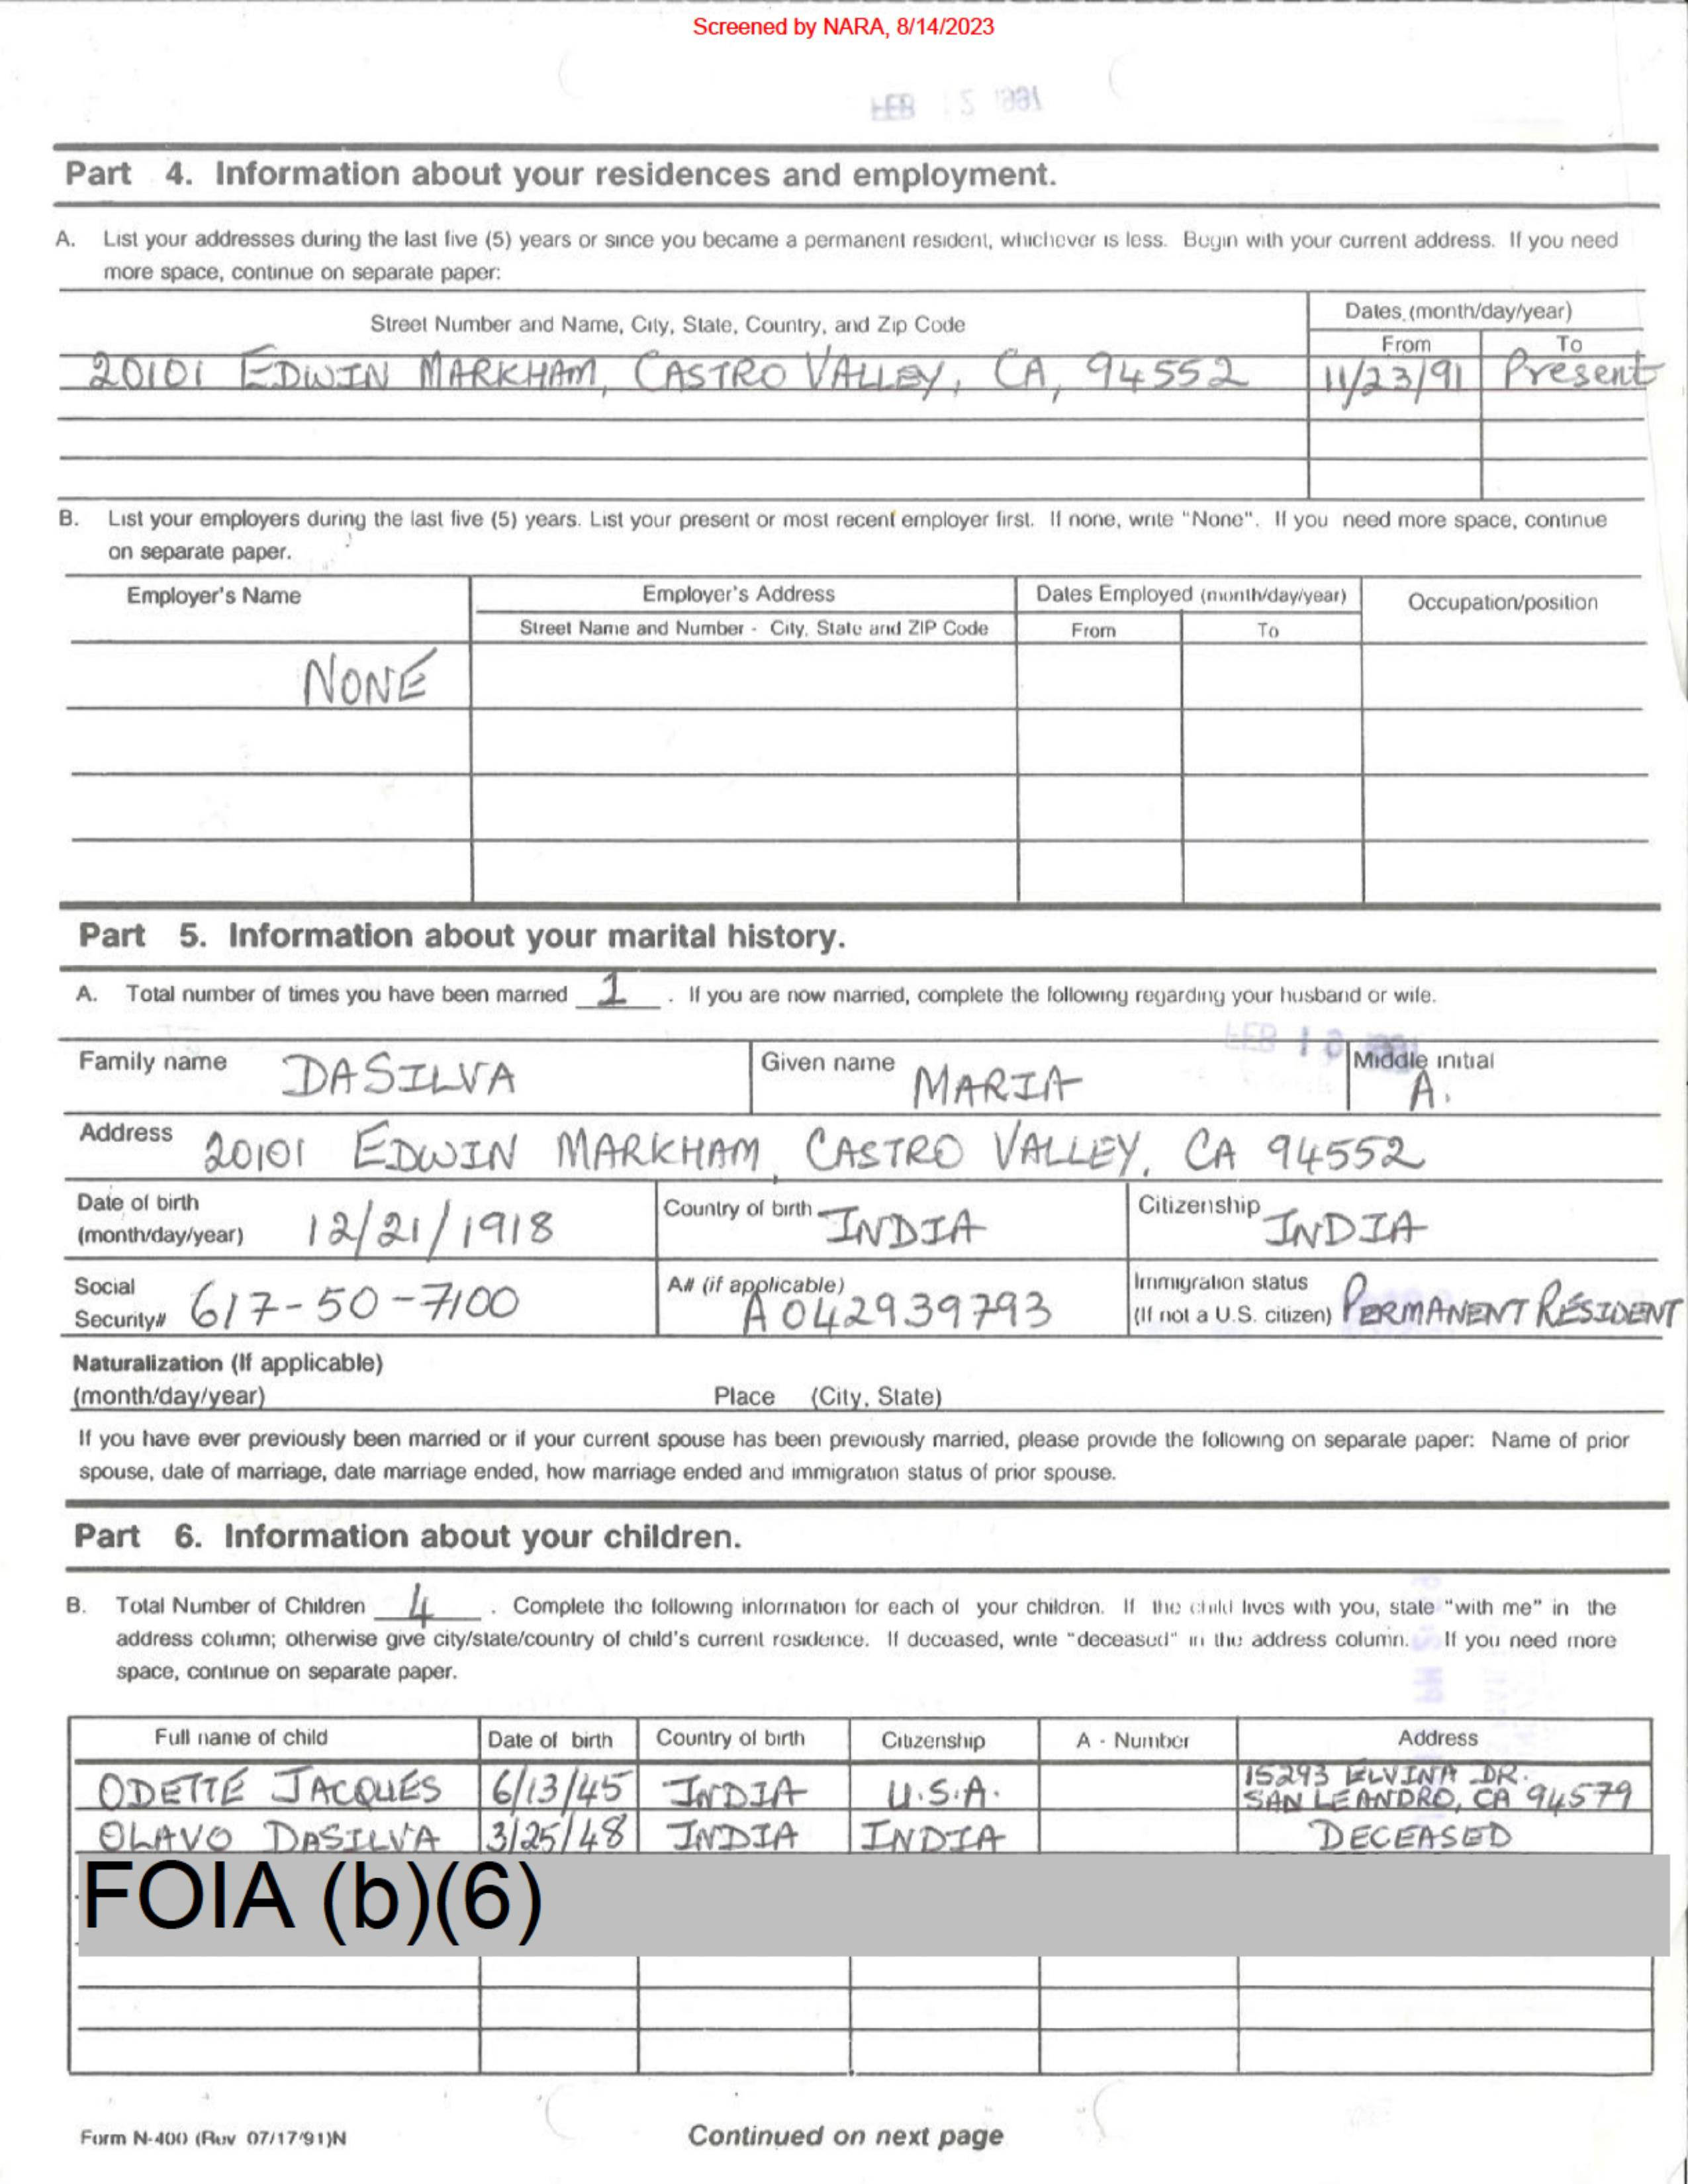 Screened by NARA, 8/14/2023
Part 4. Information about your residences and employment.
A. List your addresses during the last five (5) years or since you became a permanent resident, whichever is less. Begin with your current address. If you need
more space, continue on separate paper:
Street Number and Name, City, State, Country, and Zip Code
Dates (month/day/year)
From To
20101 EDWIN MARKHAM, CASTRO VALLEY, CA, 94552 11/23/91 Present
B. List your employers during the last five (5) years. List your present or most recent employer first. If none, write "None". If you need more space, continue
on separate paper.
Employer's Name Employer's Address Dates Employed (month/day/year) Occupation/position
Street Name and Number - City, State and ZIP Code From To
NONE
Part 5. Information about your marital history.
A. Total number of times you have been married 1 . If you are now married, complete the following regarding your husband or wife.
Family name DASILVA Given name MARIA Middle initial A.
Address 20101 EDWIN MARKHAM, CASTRO VALLEY, CA 94552
Date of birth
(month/day/year) 12/21/1918 Country of birth INDIA Citizenship INDIA
Social
Security# 617-50-7100 A# (if applicable) A042939793 Immigration status
(If not a U.S. citizen) PERMANENT RESIDENT
Naturalization (If applicable)
(month/day/year) Place (City, State)
If you have ever previously been married or if your current spouse has been previously married, please provide the following on separate paper: Name of prior
spouse, date of marriage, date marriage ended, how marriage ended and immigration status of prior spouse.
Part 6. Information about your children.
B. Total Number of Children 4 . Complete the following information for each of your children. If the child lives with you, state "with me" in the
address column; otherwise give city/state/country of child's current residence. If deceased, write "deceased" in the address column. If you need more
space, continue on separate paper.
Full name of child Date of birth Country of birth Citizenship A - Number Address
ODETTE JACQUES 6/13/45 INDIA U.S.A. 15293 ELVINA DR.
SAN LEANDRO, CA 94579
OLAVO DASILVA 3/25/48 INDIA INDIA DECEASED
FOIA (b)(6)
Form N-400 (Rev 07/17/91)N Continued on next page